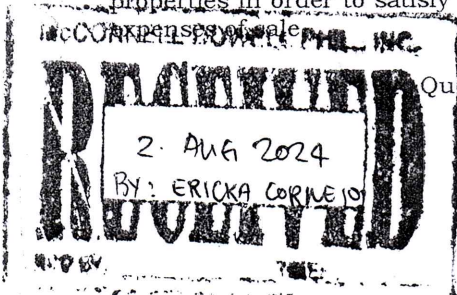 properties in order to satisfy
expenses of sale
McCONNELL DOWELL PHIL., INC.
Qu
RECEIVED
2. AUG 2024
BY: ERICKA CORNEJO
TIME: